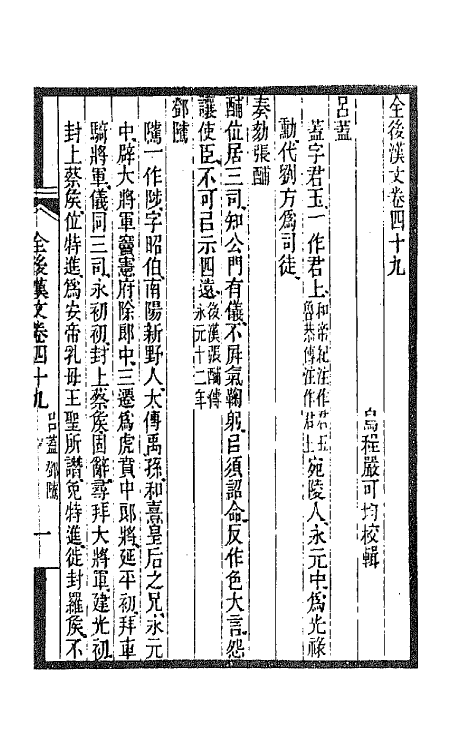 全後漢文卷四十九
烏程嚴可均校輯
呂蓋
蓋字君玉一作君上和帝紀注作君玉魯恭傳注作君上宛陵人永元中爲光祿
勳代劉方爲司徒
奏劾張酺
酺位居三司知公門有儀不屛氣鞠躬㠯須詔命反作色大言怨
讓使臣不可㠯示四遠後漢張酺傳永元十二年
鄧騭
騭一作陟字昭伯南陽新野人太傅禹孫和熹皇后之兄永元
中辟大將軍竇憲府除郎中三遷爲虎賁中郎將延平初拜車
騎將軍儀同三司永初初封上蔡矦固辭尋拜大將軍建光初
封上蔡矦位特進爲安帝乳母王聖所譖免特進徙封羅矦不
全後漢文卷四十九 呂蓋 鄧騭 一